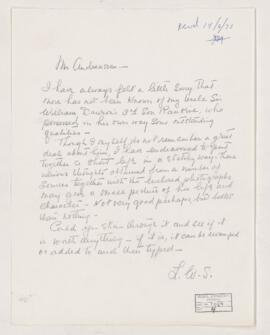 Mr Andrewson —
I have always felt a little sorry that
more has not been known of my Uncle Sir
William Dawson's 2nd Son Rankine, who
possessed in his own way some outstanding
qualities —
Though I myself do not remember a great
deal about him, I have endeavoured to piece
together a short life in a sketchy way. These
various thoughts obtained from a number of
sources together with the enclosed photographs
may give a small picture of his life and
character — Not very good perhaps, but better
than nothing —
Could you skim through it and see if it
is worth anything — if it is, it can be revamped
or added to and then typed —
L. W. S.